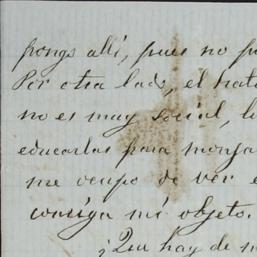 ponga allí, pues no p
Por otra lado, el trato
no es muy social, l
educarlas para monja
me ocupo de ver
consiga mi objeto.
¿Que hay de n